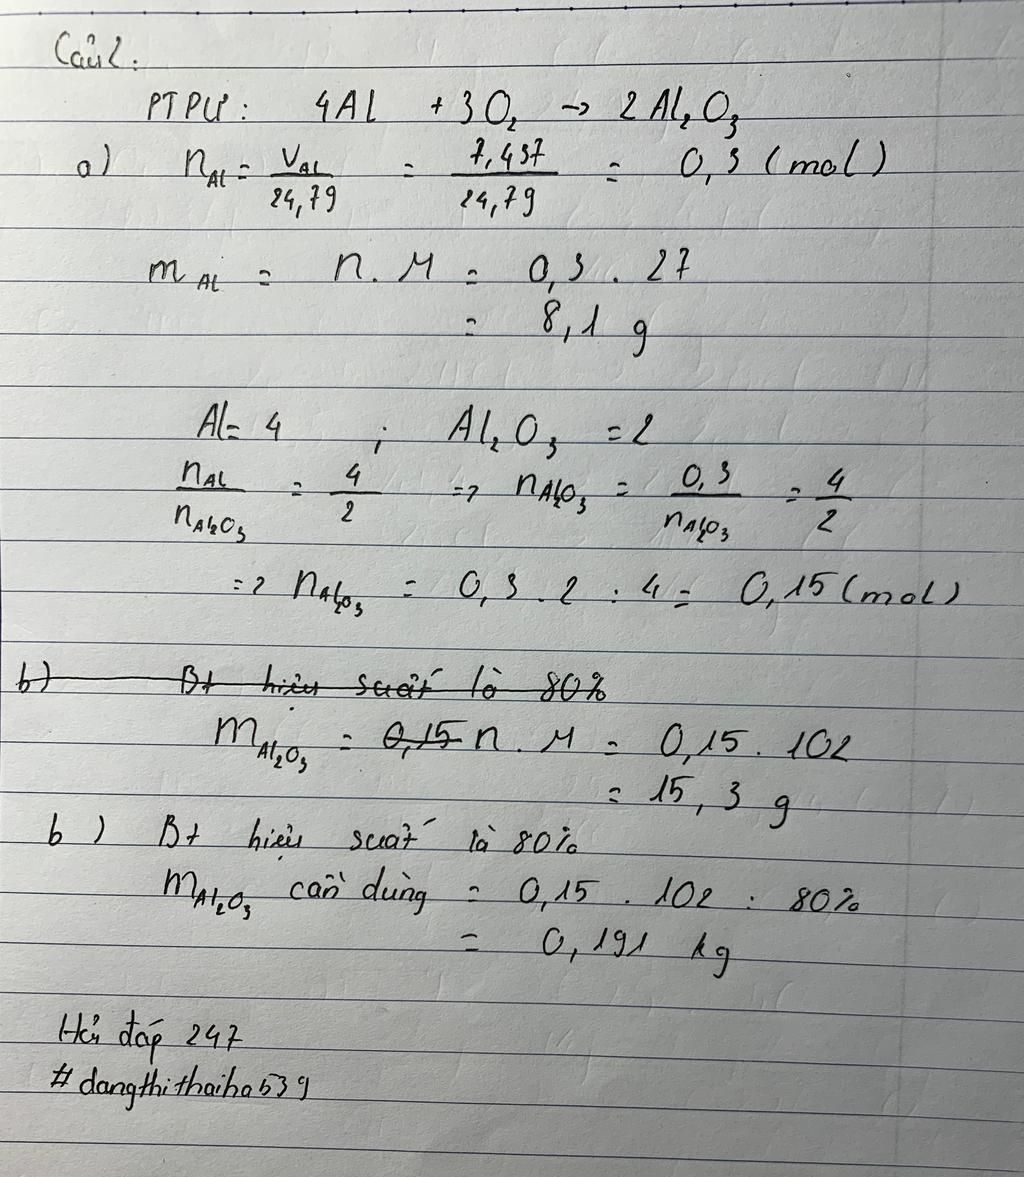 Câu 2:
PTPƯ: 4Al + 3O₂ → 2Al₂O₃
a) nAl = VAl / 24,79 = 7,437 / 24,79 = 0,3 (mol)
mAl = n.M = 0,3 . 27
= 8,1 g
Al = 4 ; Al₂O₃ = 2
nAl / nAl₂O₃ = 4 / 2 => nAl₂O₃ = 0,3 / nAl₂O₃ = 4 / 2
=> nAl₂O₃ = 0,3 . 2 : 4 = 0,15 (mol)
b) Bt hiệu suất là 80%
mAl₂O₃ = 0,15 n . M = 0,15 . 102
= 15,3 g
b) Bt hiệu suất là 80%
mAl₂O₃ cần dùng = 0,15 . 102 : 80%
= 0,191 kg
Hỏi đáp 247
#dangthithaiha539